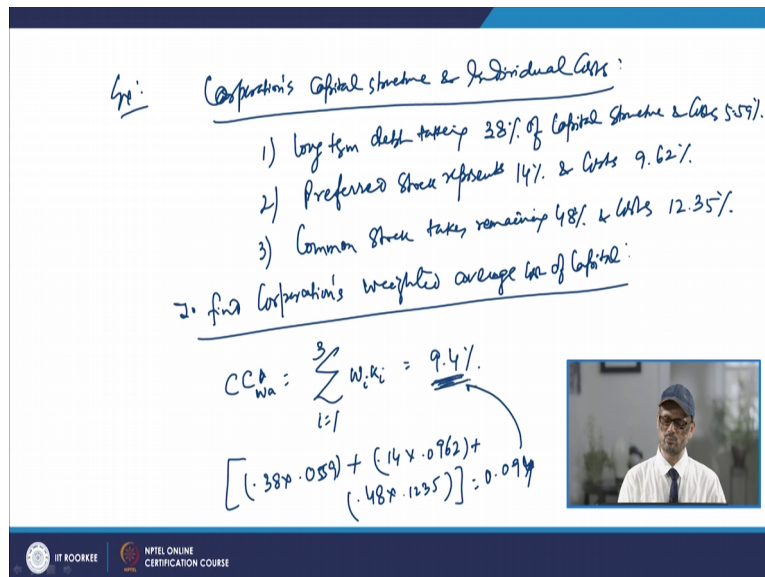 Ex:
Corporation's Capital structure & Individual Costs:
1) Long term debt taking 38% of Capital Structure & Costs 5.59%.
2) Preferred Stock represents 14% & Costs 9.62%.
3) Common Stock takes remaining 48% & Costs 12.35%.
To find Corporation's weighted average cost of Capital:
CC wa = 3 Σ i=1 wi ki = 9.4%.
[(.38 × .0559) + (.14 × .0962) +
(.48 × .1235)] = 0.094
IIT ROORKEE
NPTEL ONLINE
CERTIFICATION COURSE